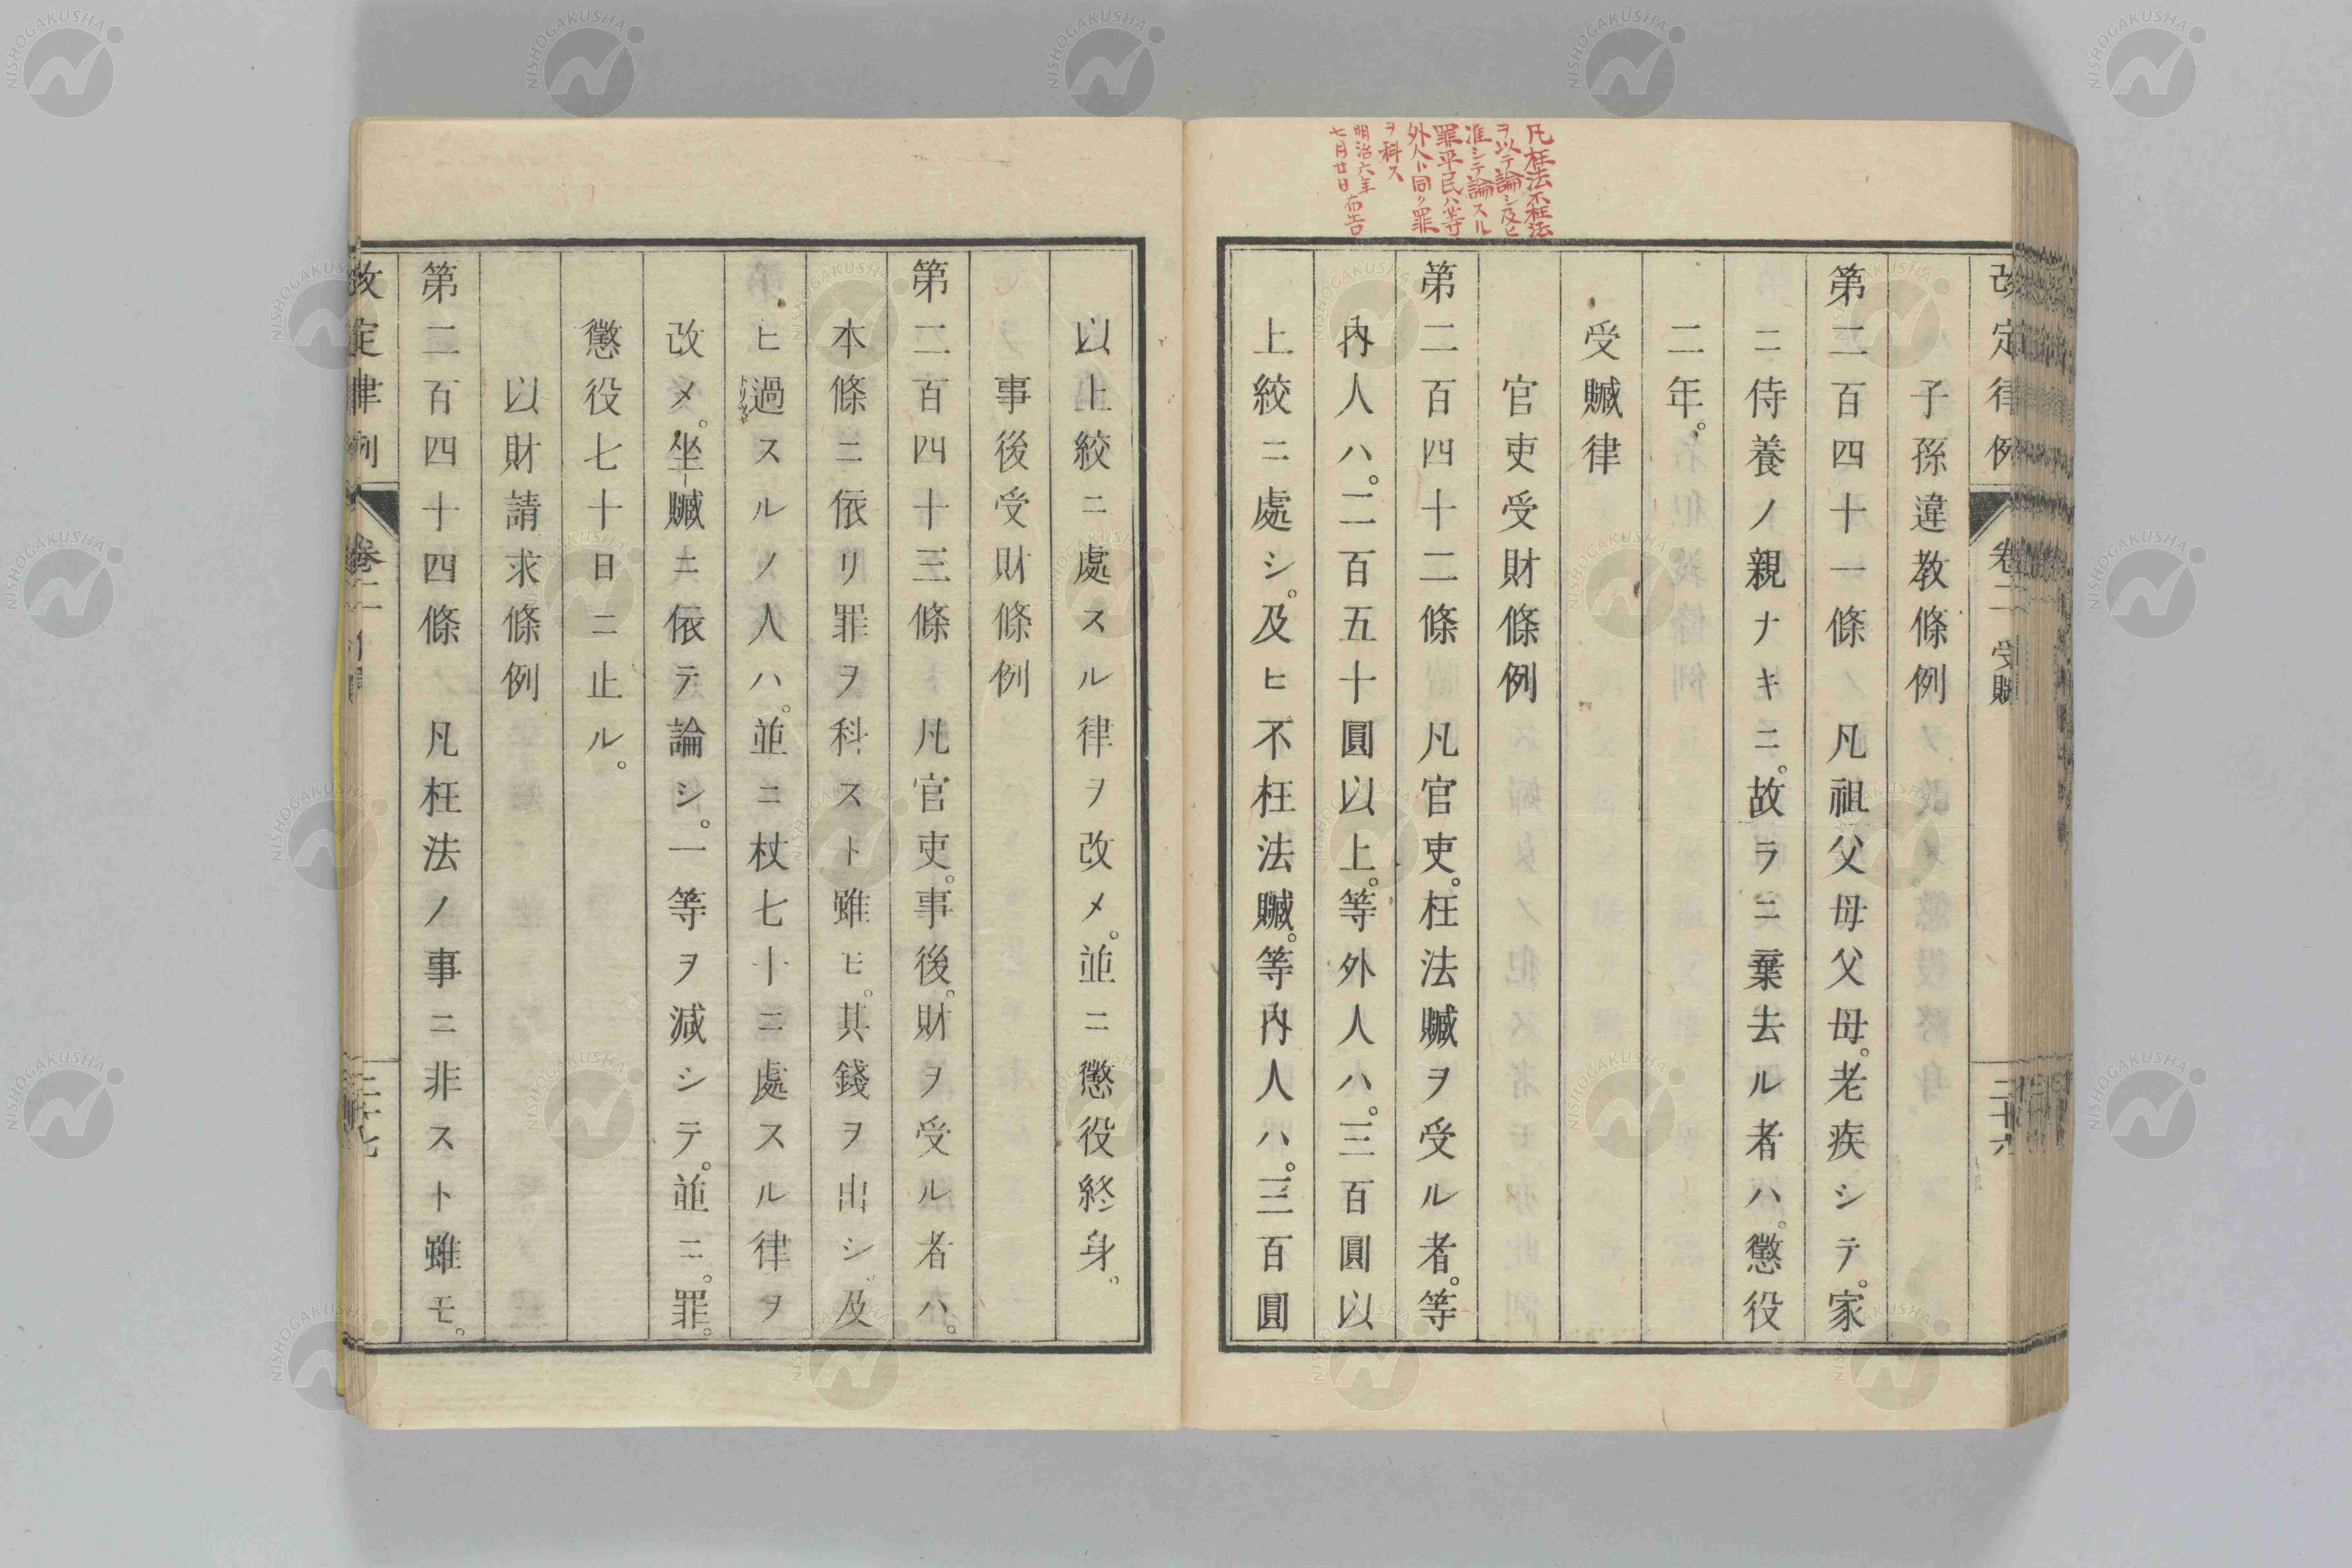 凡枉法不枉法
ヲ以テ論シ及ヒ
准シテ論スル
罪平民ハ等
外人ト同ク罪
ヲ科ス
明治六年
七月廿日布告
改定律例 卷二 受贓 二十六
子孫違教條例
第二百四十一條 凡祖父母父母。老疾シテ。家
ニ侍養ノ親ナキニ。故ラニ棄去ル者ハ。懲役
二年。
受贓律
官吏受財條例
第二百四十二條 凡官吏。枉法贓ヲ受ル者。等
內人ハ。二百五十圓以上。等外人ハ。三百圓以
上絞ニ處シ。及ヒ不枉法贓。等內人ハ。三百圓
以上絞ニ處スル律ヲ改メ。並ニ懲役終身。
事後受財條例
第二百四十三條 凡官吏。事後。財ヲ受ル者ハ。
本條ニ依リ罪ヲ科スト雖モ。其錢ヲ出シ。及
ヒ過スルノ人ハ。並ニ杖七十ニ處スル律ヲ
改メ。坐贓ニ依テ論シ。一等ヲ減シテ。並ニ。罪。
懲役七十日ニ止ル。
以財請求條例
第二百四十四條 凡枉法ノ事ニ非スト雖モ。
改定律例 卷二 二十七
NISHOGAKUSHA